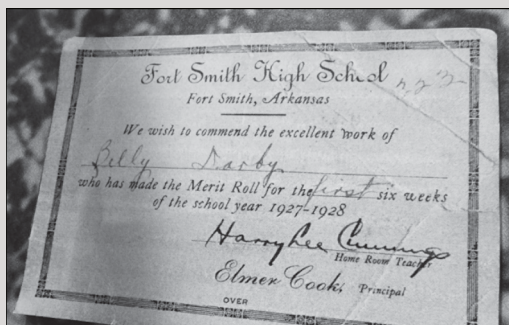 Fort Smith High School
Fort Smith, Arkansas
We wish to commend the excellent work of
Billy Darby
who has made the Merit Roll for the first six weeks
of the school year 1927-1928
Harry Lee Cummings
Home Room Teacher
Elmer Cook, Principal
OVER